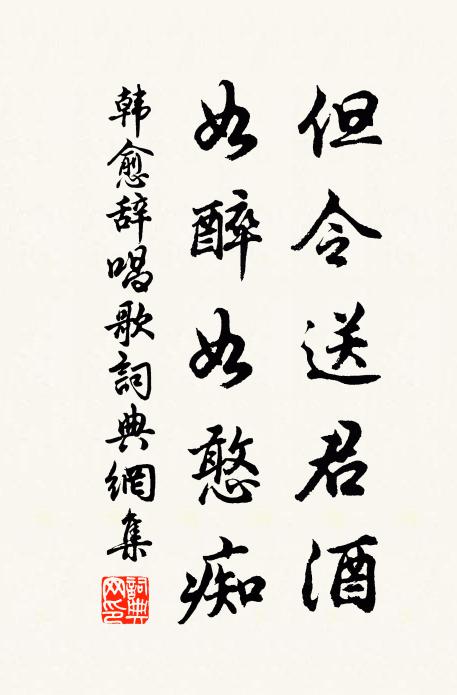 但令送君酒
如醉如憨痴
韩愈辞唱歌詞典網集
詞典
网印